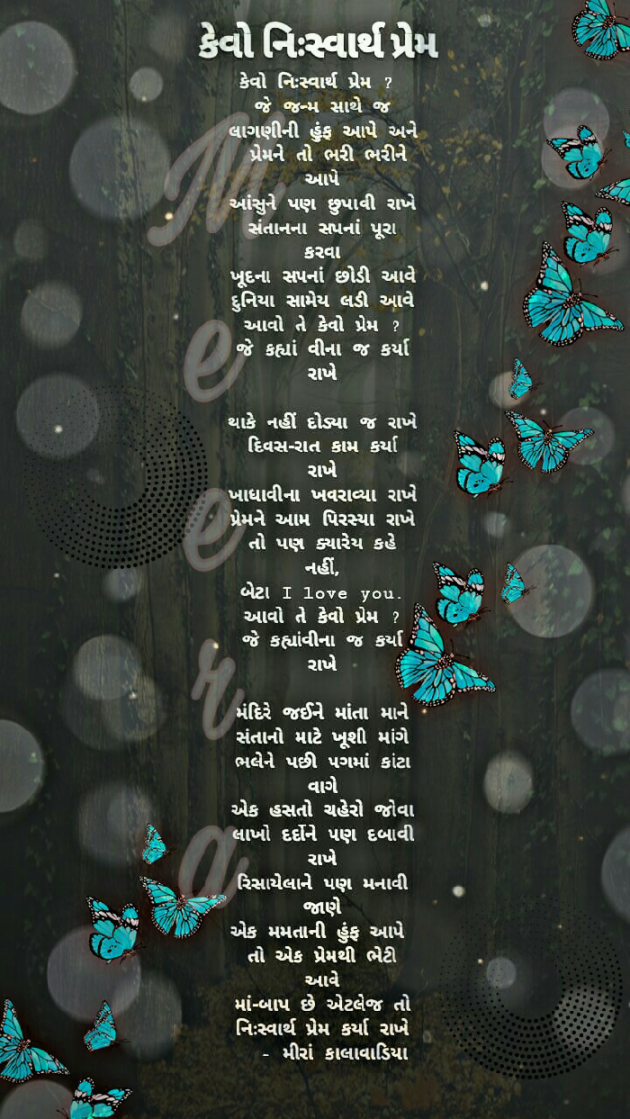 કેવો નિઃસ્વાર્થ પ્રેમ
કેવો નિઃસ્વાર્થ પ્રેમ ?
જે જન્મ સાથે જ
લાગણીની હુંફ આપે અને
પ્રેમને તો ભરી ભરીને
આપે
આંસુને પણ છુપાવી રાખે
સંતાનના સપનાં પૂરા
કરવા
ખૂદના સપનાં છોડી આવે
દુનિયા સામેય લડી આવે
આવો તે કેવો પ્રેમ ?
જે કહ્યાં વીના જ કર્યા
રાખે
થાકે નહીં દોડ્યા જ રાખે
દિવસ-રાત કામ કર્યા
રાખે
ખાધાવીના ખવરાવ્યા રાખે
પ્રેમને આમ પિરસ્યા રાખે
તો પણ ક્યારેય કહે
નહીં,
બેટા I love you.
આવો તે કેવો પ્રેમ ?
જે કહ્યાંવીના જ કર્યા
રાખે
મંદિરે જઈને માંતા માને
સંતાનો માટે ખૂશી માંગે
ભલેને પછી પગમાં કાંટા
વાગે
એક હસતો ચહેરો જોવા
લાખો દર્દોને પણ દબાવી
રાખે
રિસાયેલાને પણ મનાવી
જાણે
એક મમતાની હુંફ આપે
તો એક પ્રેમથી ભેટી
આવે
માં-બાપ છે એટલેજ તો
નિઃસ્વાર્થ પ્રેમ કર્યા રાખે
- મીરાં કાલાવાડિયા
Meera